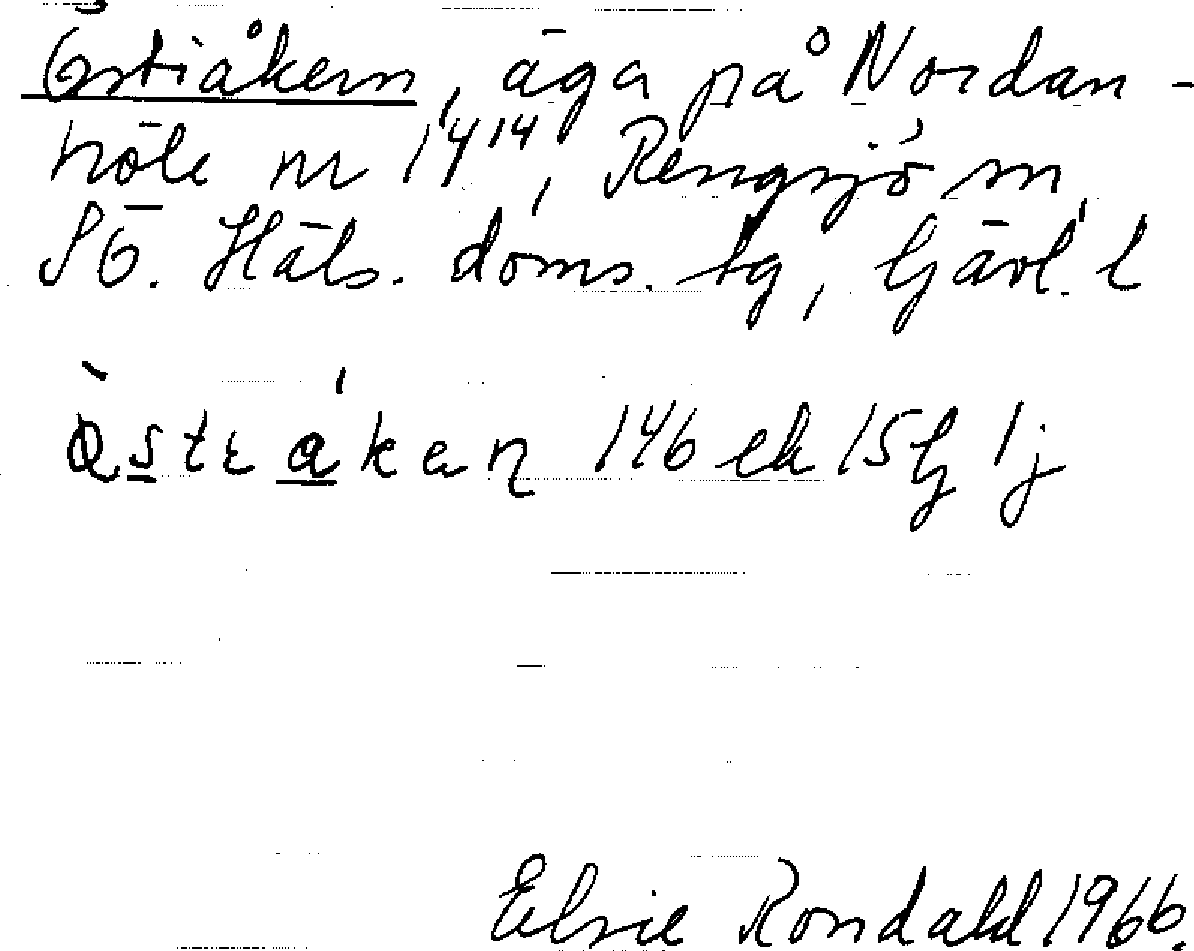 Östiåkern, äga på Nordan-
höle nr 1⁴14, Rengsjö sn,
SÖ. Häls. doms. tg, Gävl. l
Òstɩákaɳ 146 ek 15 lj 1j
Elsie Rondahl 1966.